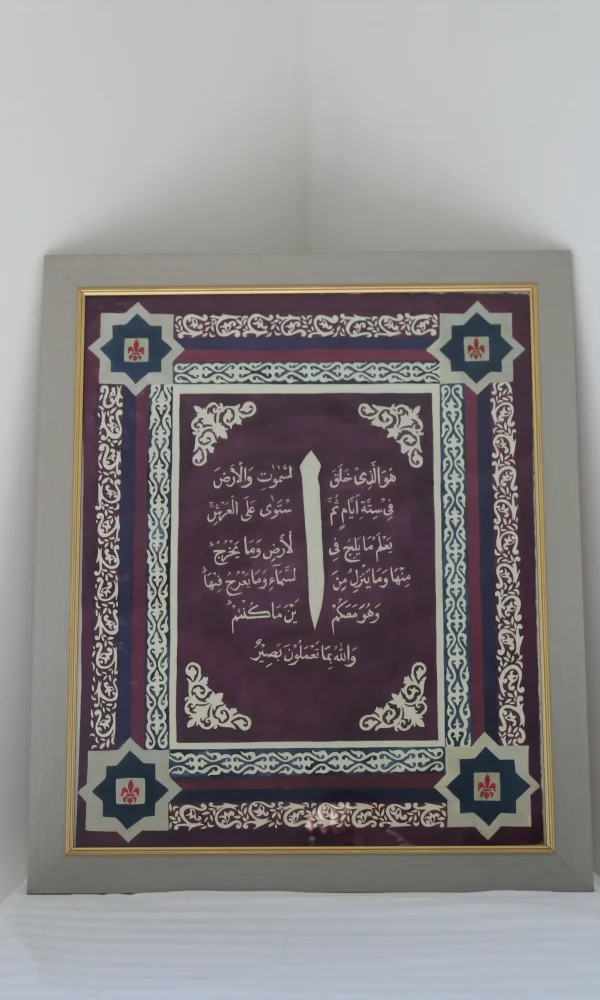 هُوَ الَّذِىْ خَلَقَ السَّمٰوٰتِ وَالْاَرْضَ
فِىْ سِتَّةِ اَيَّامٍ ثُمَّ اسْتَوٰى عَلَى الْعَرْشِ
يَعْلَمُ مَا يَلِجُ فِى الْاَرْضِ وَمَا يَخْرُجُ
مِنْهَا وَمَا يَنْزِلُ مِنَ السَّمَآءِ وَمَا يَعْرُجُ فِيْهَا
وَهُوَ مَعَكُمْ اَيْنَ مَا كُنْتُمْ
وَاللّٰهُ بِمَا تَعْمَلُوْنَ بَصِيْرٌ